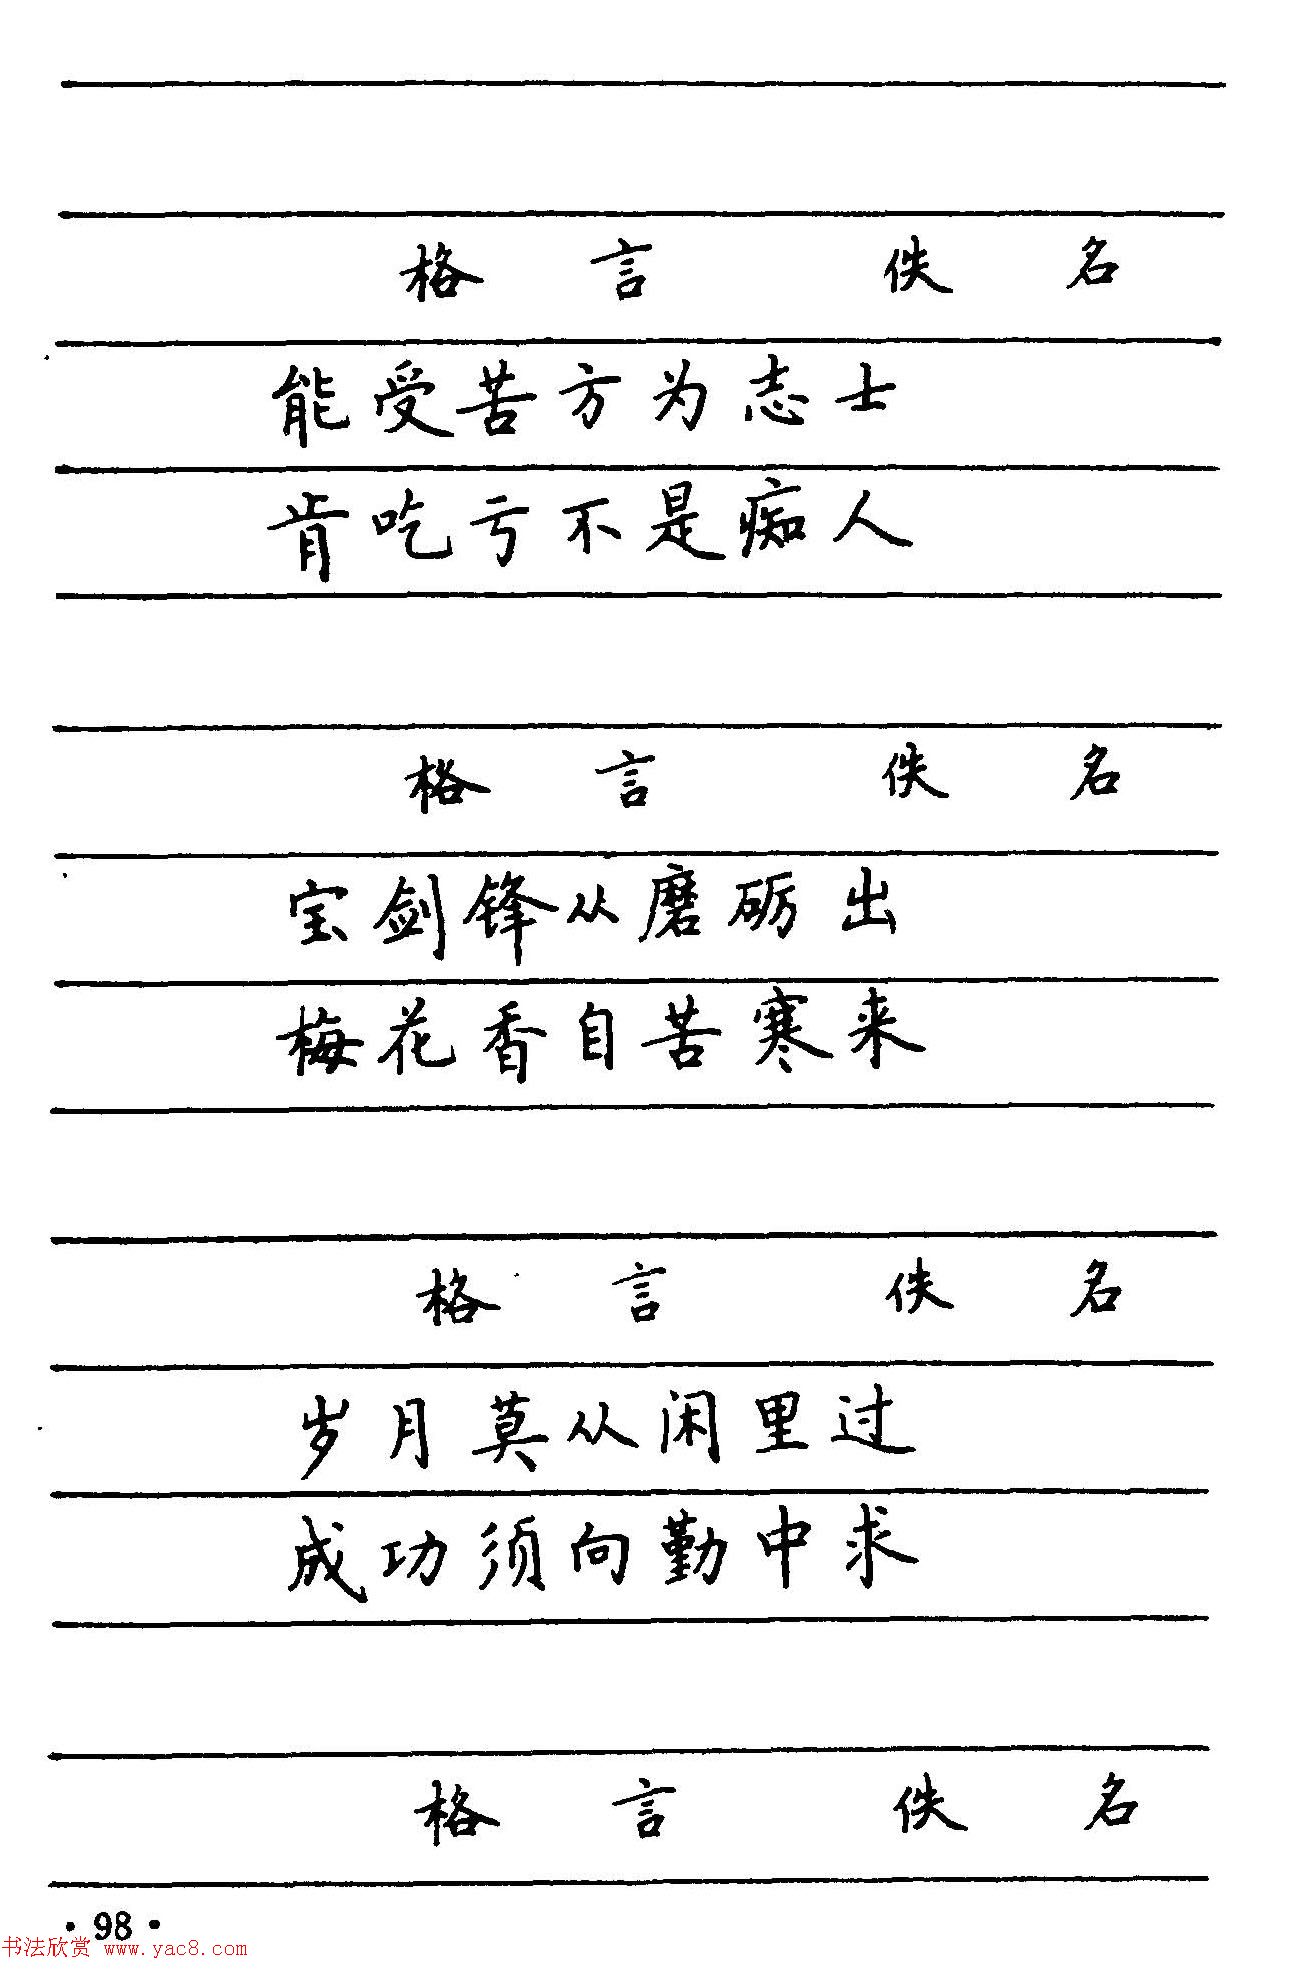 格言 佚名
能受苦方为志士
肯吃亏不是痴人
格言 佚名
宝剑锋从磨砺出
梅花香自苦寒来
格言 佚名
岁月莫从闲里过
成功须向勤中求
格言 佚名
·98·
书法欣赏 www.yac8.com